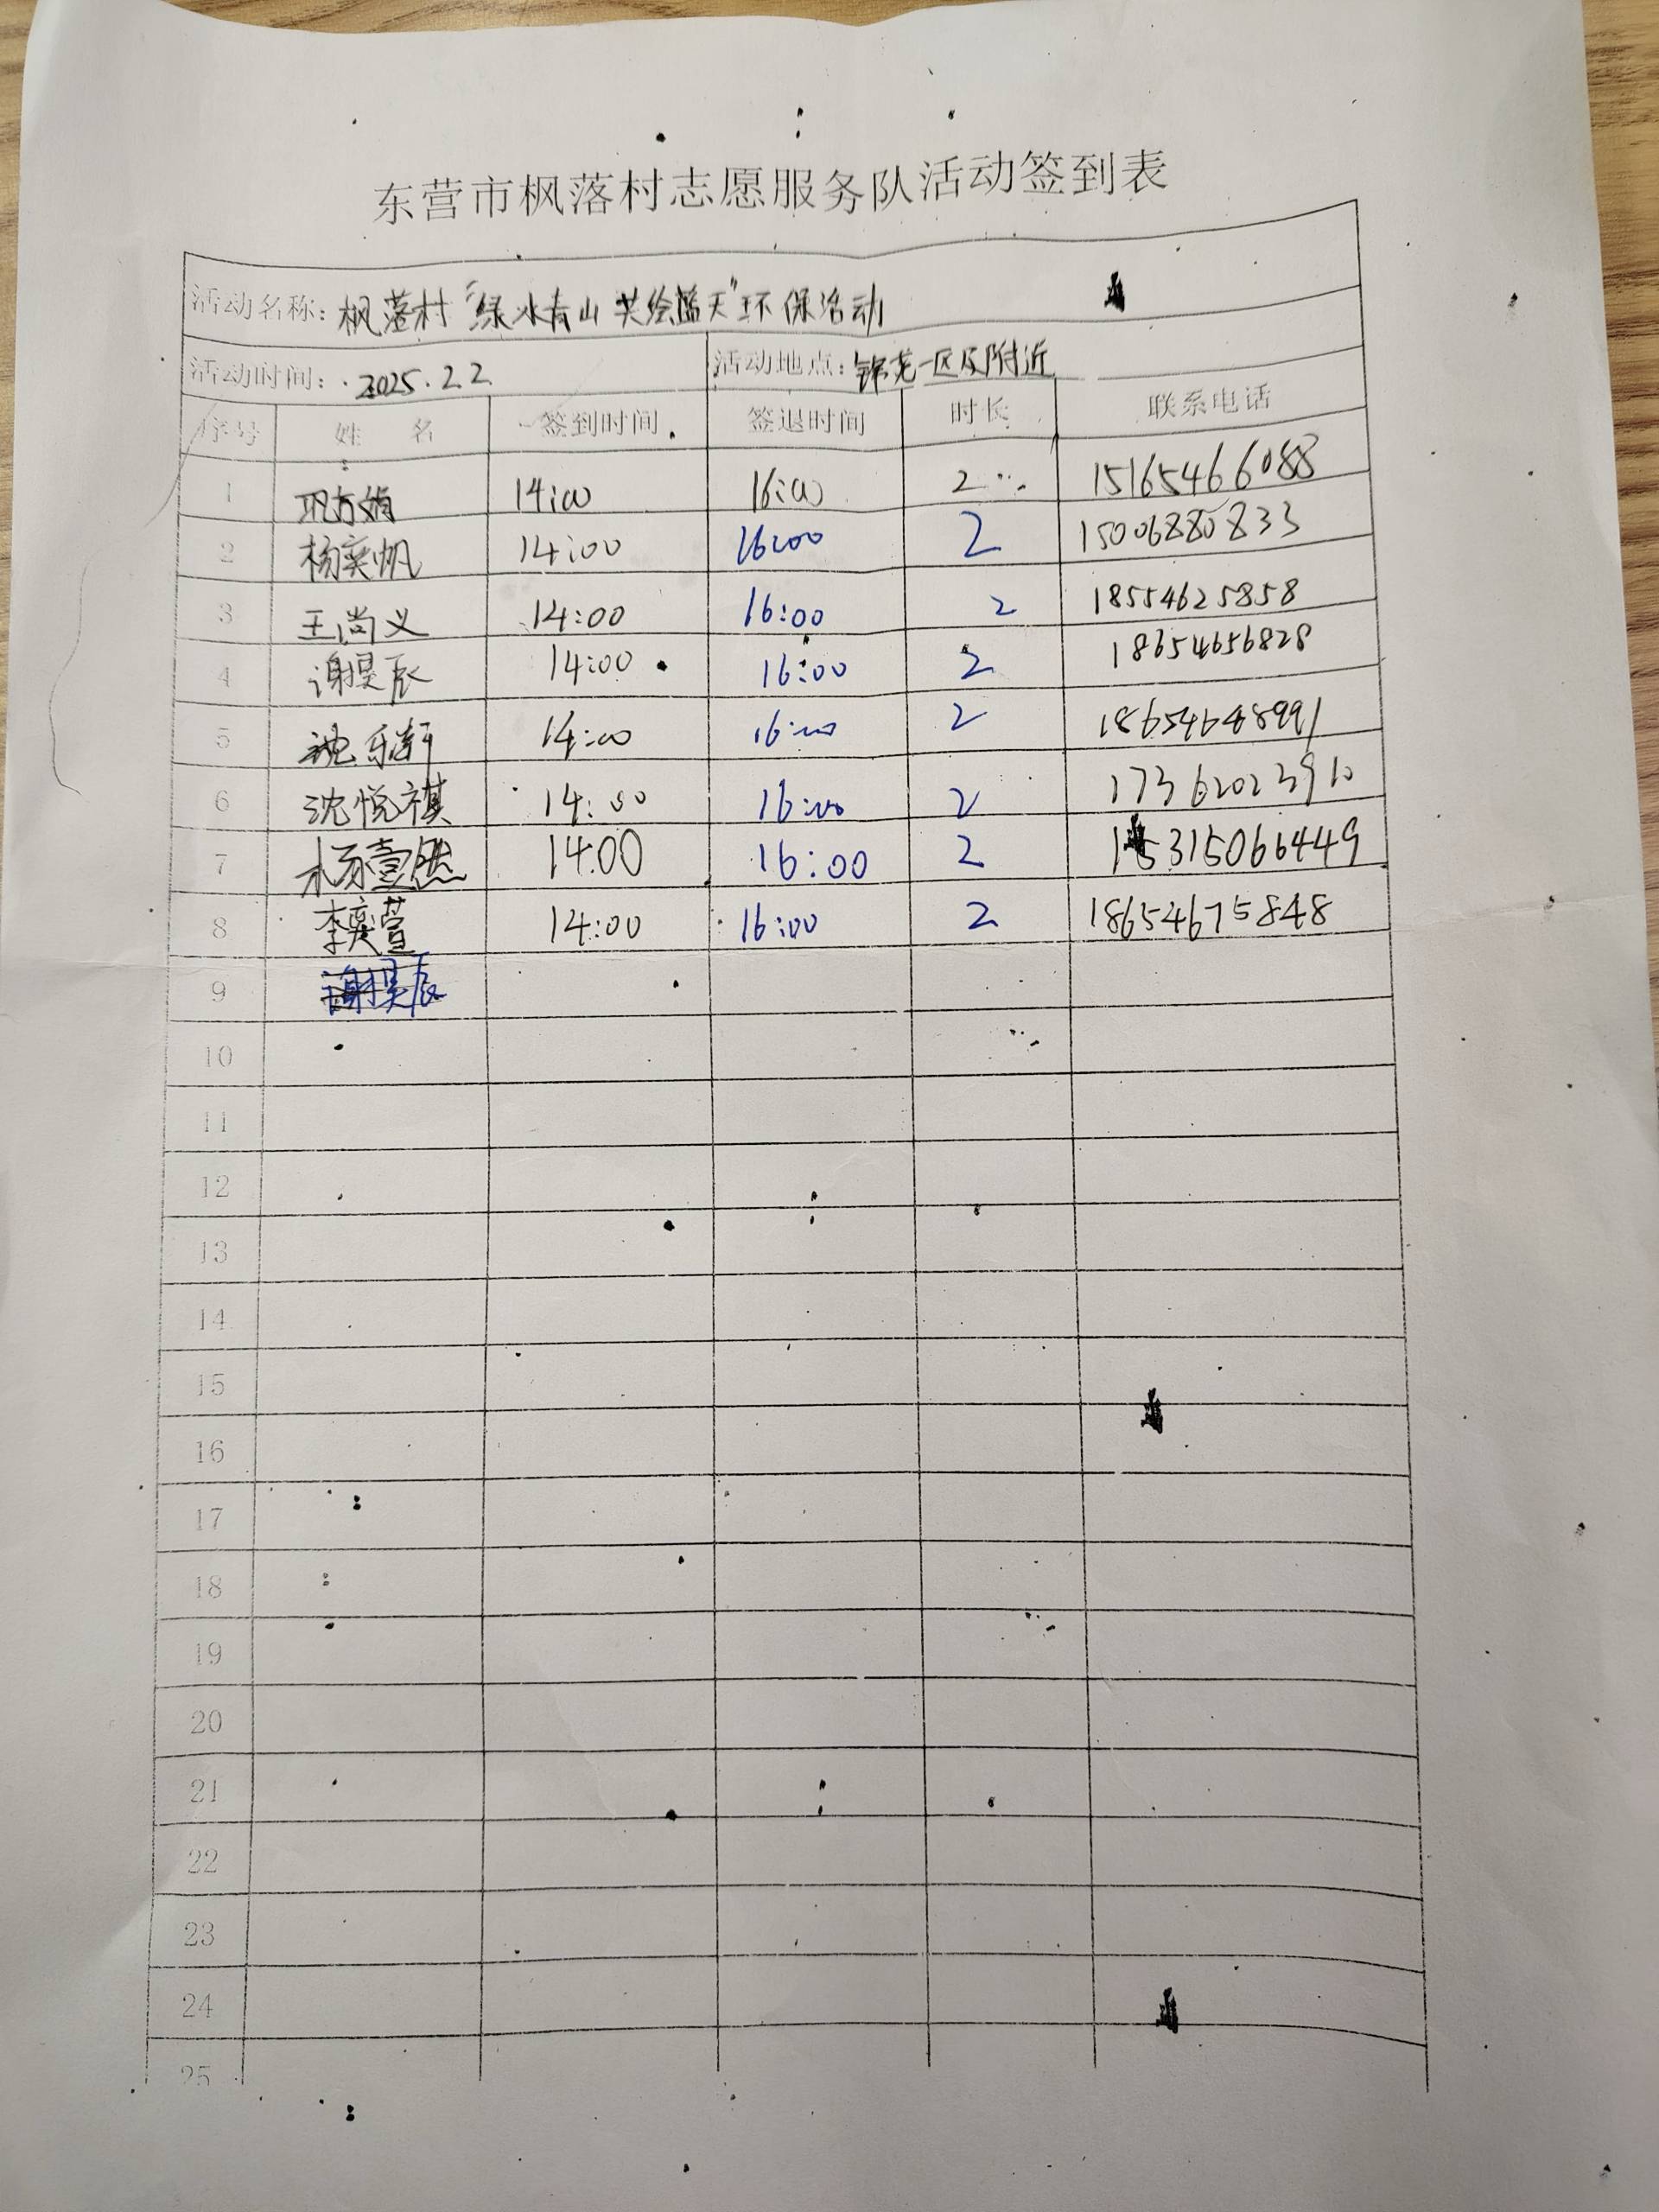 东营市枫落村志愿服务队活动签到表
活动名称：枫落村“绿水青山 共绘蓝天”环保活动
活动时间： 2025.2.2 活动地点：锦苑一区及附近
序号 姓 名 签到时间 签退时间 时长 联系电话
1 巩方娟 14:00 16:00 2 15165466088
2 杨奕帆 14:00 16:00 2 15006880833
3 王尚义 14:00 16:00 2 18554625858
4 谢昊辰 14:00 16:00 2 18654656828
5 14:00 16:00 2 18654648991
6 沈悦祺 14:00 16:00 2 17362023910
7 杨壹然 14:00 16:00 2 15315066449
8 李奕萱 14:00 16:00 2 18654675848
9 谢昊辰
10
11
12
13
14
15
16
17
18
19
20
21
22
23
24
25